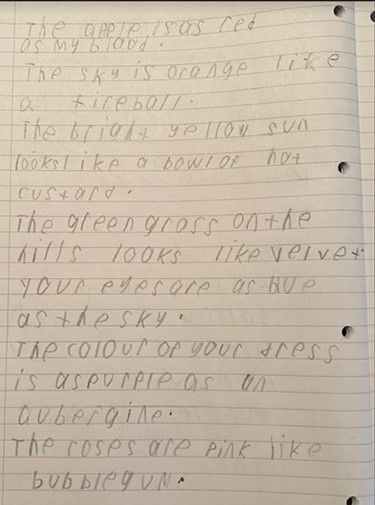 The apple is as red
as my blood.
The sky is orange like
a fireball.
The bright yellow sun
looks like a bowl of hot
custard.
The green grass on the
hills looks like velvet
your eyes are as blue
as the sky.
The colour of your dress
is as purple as an
aubergine.
The roses are pink like
bubblegum.